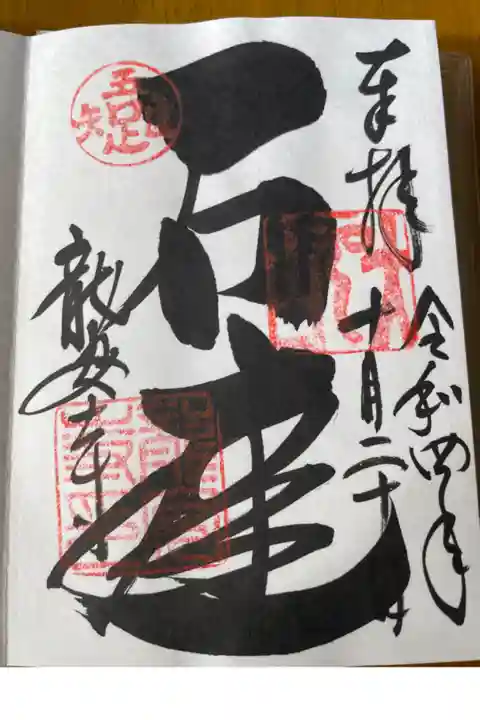 奉拝
令和四年
十月二十 日
石庭
龍安寺
吾唯足知